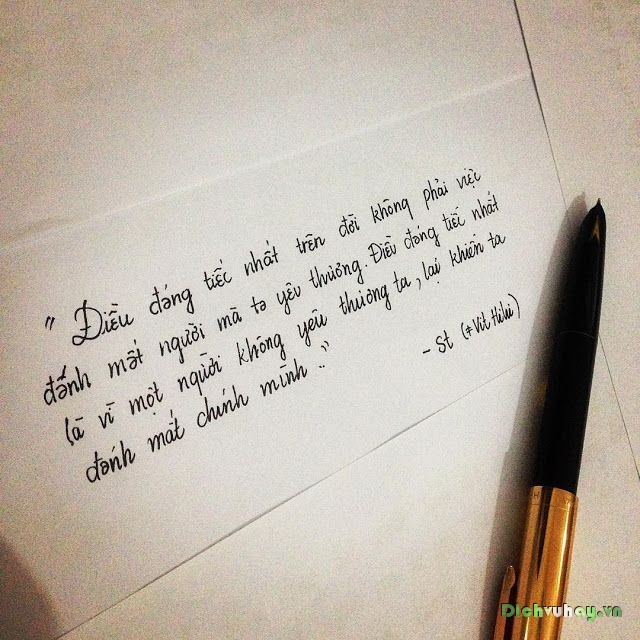 " Điều đáng tiếc nhất trên đời không phải việc
đánh mất người mà ta yêu thương. Điều đáng tiếc nhất
là vì một người không yêu thương ta, lại khiến ta
đánh mất chính mình :"
- St (#Vit Hihi)
Dichvuhay.vn